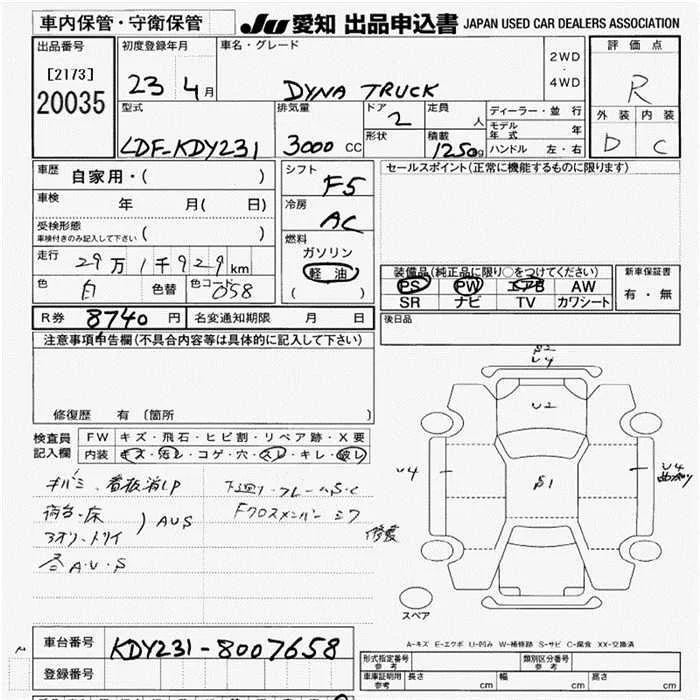 車内保管・守衛保管
JU 愛知 出品申込書 JAPAN USED CAR DEALERS ASSOCIATION
出品番号
[2173]
20035
初度登録年月
23 4月
車名・グレード
DYNA TRUCK
2WD
・
4WD
評価点
R
外装 内装
D C
型式
LDF-KDY231
排気量
3000 CC
ドア
2
形状
定員
人
積載
1250 kg
ディーラー・並行
モデル年式 年
ハンドル 左・右
車歴 自家用・( )
車検 年 月( 日)
受検形態
車検付きのみ記入して下さい ( )
走行 29万1千929km
色 白 色替 色コード 058
シフト
F5
冷房
AC
燃料
ガソリン
軽油
( )
セールスポイント(正常に機能するものに限ります)
装備品(純正品に限り○をつけてください)
PS PW エアB AW
SR ナビ TV カワシート
新車保証書
有・無
R券 8740円 名変通知期限 月 日
後日品
注意事項申告欄(不具合内容等は具体的に記入して下さい)
修復歴 有 〔箇所 〕
検査員
記入欄
FW キズ・飛石・ヒビ割・リペア跡・X要
内装 キズ・汚レ・コゲ・穴・スレ・キレ・破レ
キバミ、看板消LP
荷台・床
アオリ・トリイ
AUS
各A・U・S
下回リ・フレームS・C
Fクロスメンバー
修复
U4
U2
U4
S1
U4
スペア
A-キズ E-エクボ U-凹み W-補修跡 S-サビ C-腐食 XX-交換済
車台番号 KDY231-8007658
登録番号
形式指定番号
参考
類別区分番号
参考
車庫証明用
参考
長さ cm 幅 cm 高さ cm